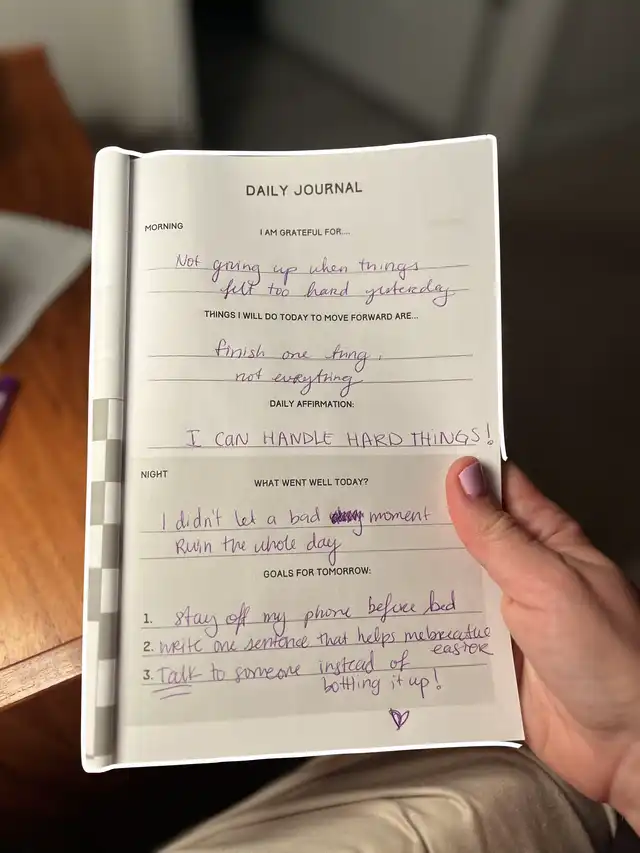 DAILY JOURNAL
MORNING
I AM GRATEFUL FOR....
Not giving up when things
felt too hard yesterday
THINGS I WILL DO TODAY TO MOVE FORWARD ARE...
finish one thing,
not everything
DAILY AFFIRMATION:
I CAN HANDLE HARD THINGS!
NIGHT
WHAT WENT WELL TODAY?
I didn't let a bad moment
Ruin the whole day
GOALS FOR TOMORROW:
1. stay off my phone before bed
2. write one sentence that helps me breathe
easier
3. Talk to someone instead of
bottling it up!